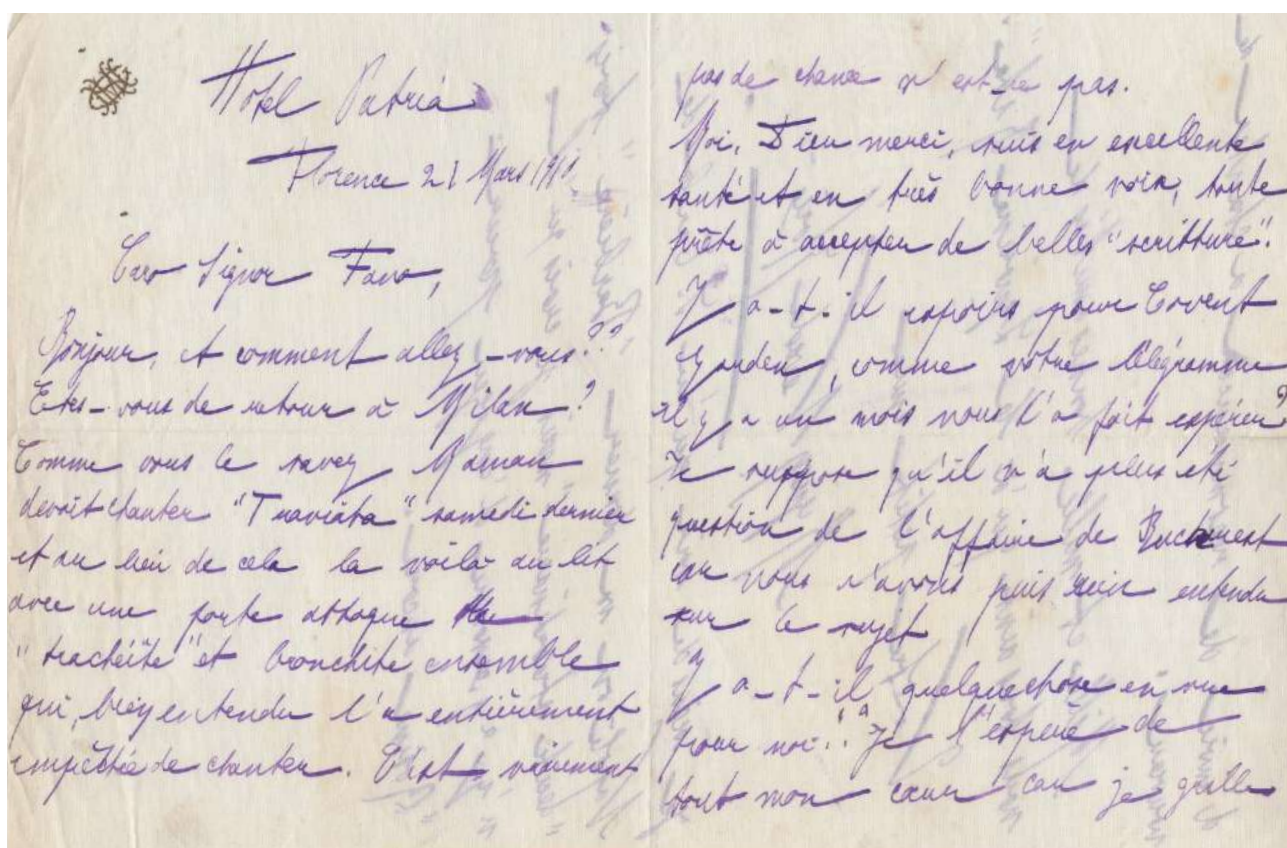 Hotel Patria
Florence 21 Mars
Caro Signor Fano,
Bonjour, et comment allez-vous??
Etes-vous de retour à Milan?
Comme vous le savez Maman
devait chanter "Traviata" samedi dernier
et au lieu de cela la voilà au lit
avec une forte attaque
"trachéite" et bronchite ensemble
qui, bien entendu l'a entièrement
empêchée de chanter. C'est vraiment
pas de chance n'est-ce pas.
Moi, Dieu merci, suis en excellente
santé et en très bonne voix, toute
prête à accepter de belles "scritture".
Y a-t-il espoirs pour Covent
Garden, comme votre télégramme
il y a un mois nous l'a fait espérer?
Je suppose qu'il n'a plus été
question de l'affaire de Bucarest
car nous n'avons puis rien entendu
sur le sujet
Y a-t-il quelquechose en vue
pour moi? Je l'espère de
tout mon cœur car je grille